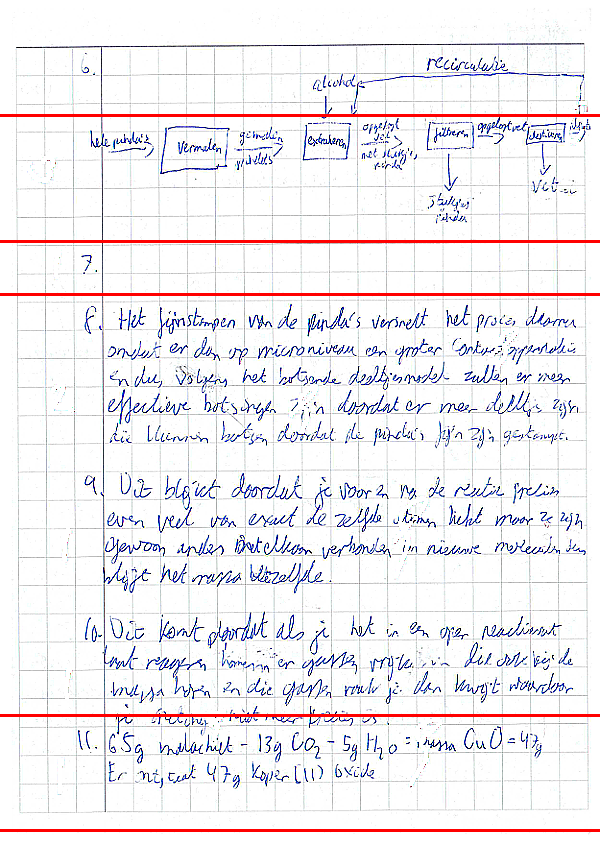 6.
recirculatie
alcohol
hele pinda's
vermalen
gemalen
extraheren
opgelost vet
met stukjes pinda
filtreren
opgelost vet
destilleren
stukjes pinda
vet
7.
8. Het fijnstampen van de pinda's versnelt het proces daarom
omdat er dan op microniveau een groter contactoppervlakte
en dus volgens het botsende deeltjesmodel zullen er meer
effectieve botsingen zijn doordat er meer deeltjes zijn
die kunnen botsen doordat de pinda's fijn zijn gestampt.
9. Dit blijkt doordat je voor en na de reactie precies
even veel van exact de zelfde atomen hebt maar ze zijn
gewoon anders met elkaar verbonden in nieuwe moleculen dus
blijft het massa hetzelfde.
10. Dit komt doordat als je het in een open
laat reageren komen er gassen vrij die ook bij de
massa horen en die gassen raak je dan kwijt waardoor
je niet meer precies is.
11. 65g malachiet - 13g CO2 - 5g H2O = massa CuO = 47g
Er ontstaat 47g koper (II) oxide